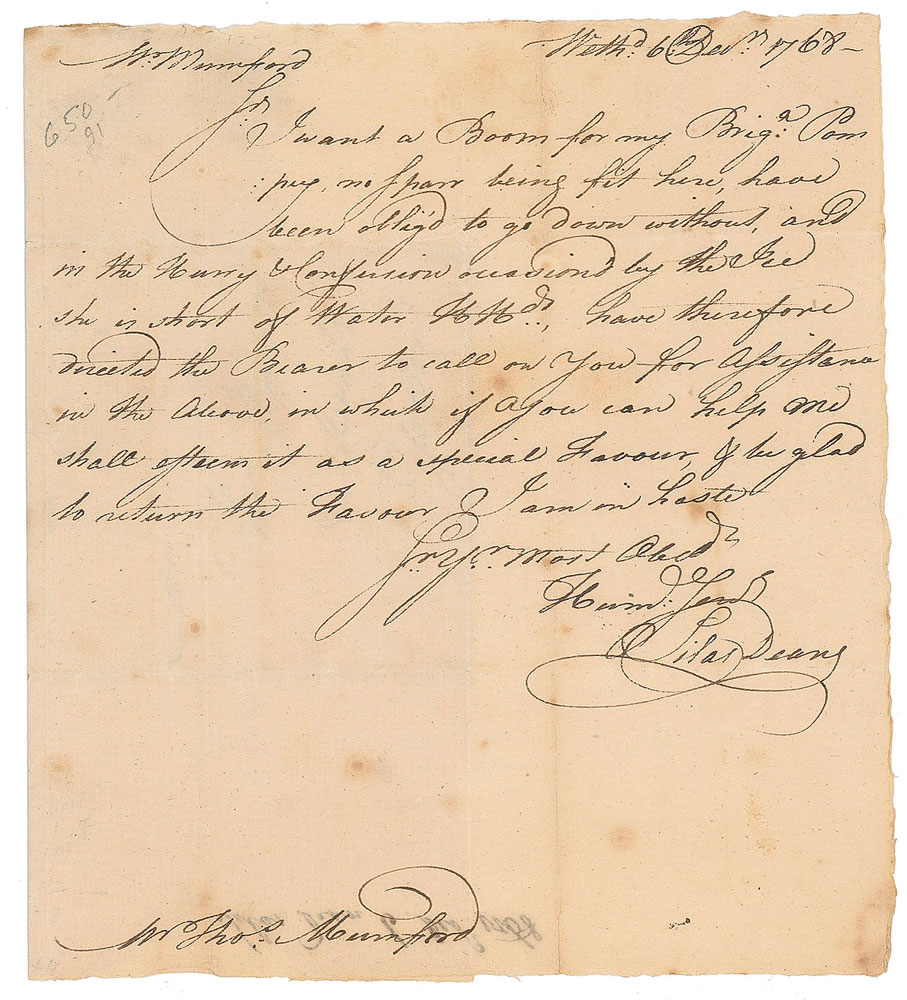 Weth.d 6th Decr. 1768 –
Mr. Mumford
650 –
91
Sr.
I want a Boom for my Brig.a Pom
:pey, no Sparr being fit here, have
been oblig'd to go down without, and
in the Hurry & Confusion occasion'd by the Ice
she is short of Water HHds., have therefore
directed the Bearer to call on You for Assistance
in the Above, in which if You can help me
shall esteem it as a special Favour, & be glad
to return the Favour I am in haste
Sr. Yr. most Obedt
Humb. Servt
Silas Deane
Mr. Thos. Mumford